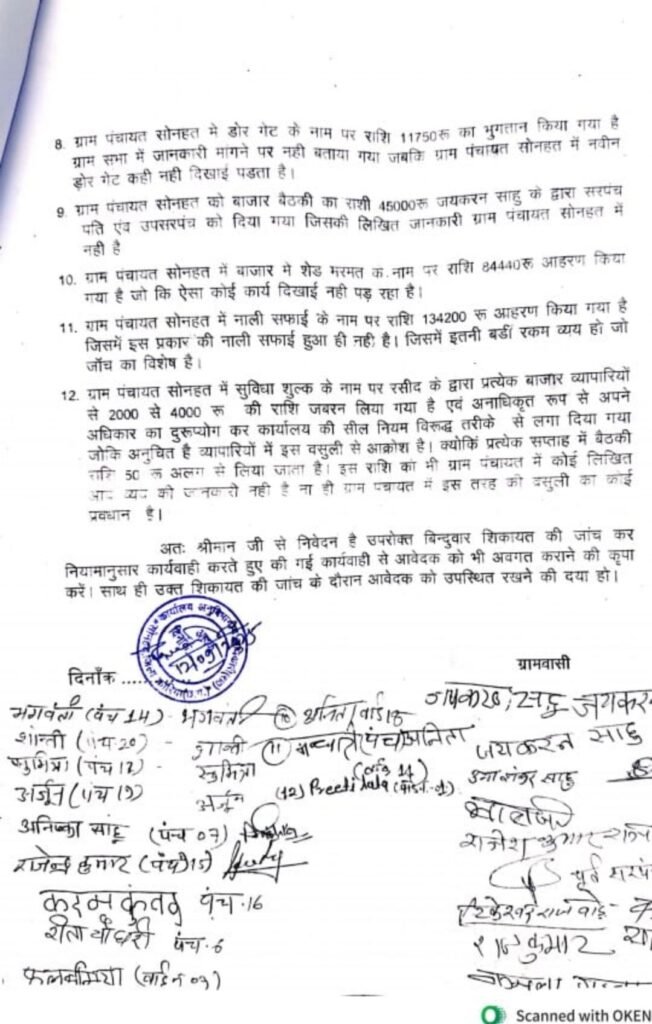 8. ग्राम पंचायत सोनहत मे डोर गेट के नाम पर राशि 11750रू का भुगतान किया गया है
ग्राम सभा में जानकारी मांगने पर नही बताया गया जबकि ग्राम पंचायत सोनहत में नवीन
डोर गेट कही नही दिखाई पडता है।
9. ग्राम पंचायत सोनहत को बाजार बैठकी का राशी 45000रू जयकरन साहु के द्वारा सरपंच
पति एंव उपसरपंच को दिया गया जिसकी लिखित जानकारी ग्राम पंचायत सोनहत में
नही है
10. ग्राम पंचायत सोनहत में बाजार मे शेड मरमत क नाम पर राशि 84440रू आहरण किया
गया है जो कि ऐसा कोई कार्य दिखाई नही पड़ रहा है।
11. ग्राम पंचायत सोनहत में नाली सफाई के नाम पर राशि 134200 रू आहरण किया गया है
जिसमें इस प्रकार की नाली सफाई हुआ ही नही है। जिसमें इतनी बडीं रकम व्यय हो जो
जॉच का विशेष है।
12. ग्राम पंचायत सोनहत में सुविधा शुल्क के नाम पर रसीद के द्वारा प्रत्येक बाजार व्यापारियों
से 2000 से 4000 रू की राशि जबरन लिया गया है एवं अनाधिकृत रूप से अपने
अधिकार का दुरूप्योग कर कार्यालय की सील नियम विरूद्ध तरीके से लगा दिया गया
जोकि अनुचित है व्यापारियों में इस वसुली से आक्रोश है। क्योकि प्रत्येक सप्ताह में बैठकी
राशि 50 रू अलग से लिया जाता है। इस राशि का भी ग्राम पंचायत में कोई लिखित
आय व्यय की जानकारी नही है ना ही ग्राम पंचायत में इस तरह की वसुली का कोई
प्रवधान है।
अतः श्रीमान जी से निवेदन है उपरोक्त बिन्दुवार शिकायत की जांच कर
नियामानुसार कार्यवाही करते हुए की गई कार्यवाही से आवेदक को भी अवगत कराने की कृपा
करें। साथ ही उक्त शिकायत की जांच के दौरान आवेदक को उपस्थित रखने की दया हो।
दिनाँक
ग्रामवासी
भगवंती (पंच 14) - भगवन्ती
शान्ती (पंच 20) - शान्ती
सुमित्रा (पंच 12) - सुमित्रा
अर्जून (पंच 19) अर्जून
(12) Preeti
अनिष्का साहू (पंच 07)
राजेन्द्र कुमार (पंच 15)
पंच-16
पंच-6
जयकरन
जयकरन साहु
राजकुमार
Scanned with OKEN